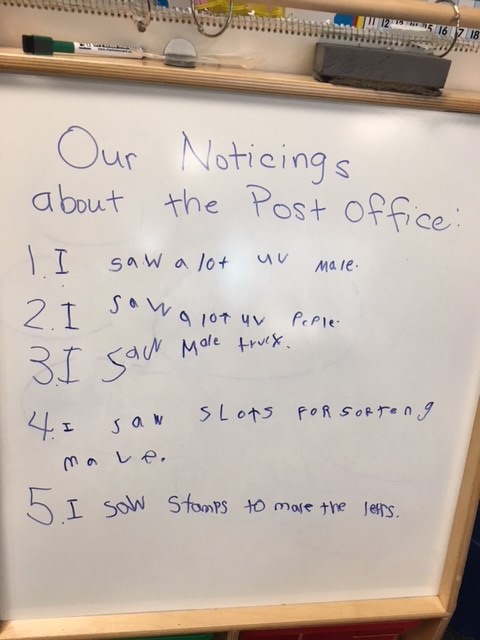 11 12 15 16 17 18
Our Noticings
about the Post Office:
1. I saw a lot uv Male.
2. I saw a lot uv Peple.
3. I saw Male truck.
4. I saw SLots FOR sorteng
male.
5. I saw Stamps to male the lettrs.